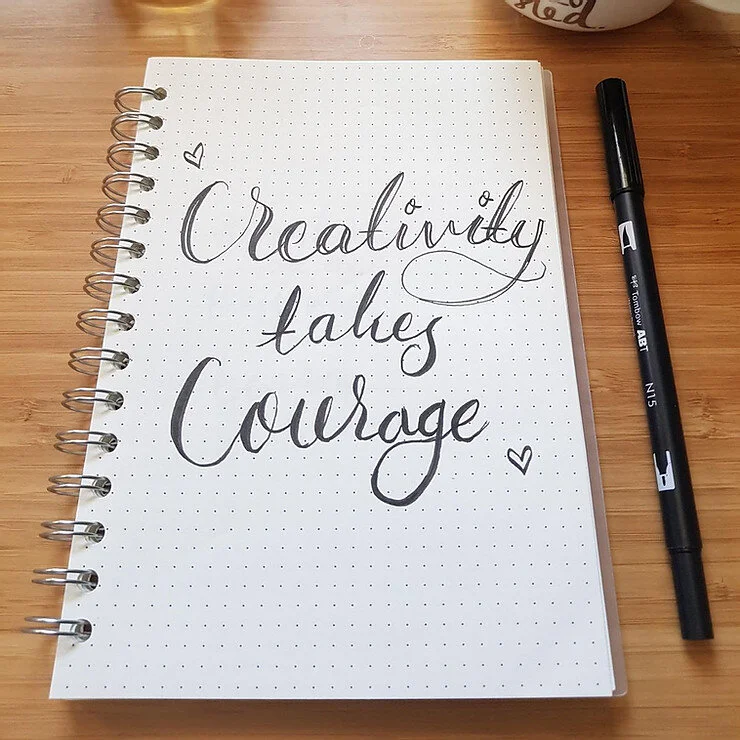 Creativity
takes
Courage
Tombow ABT N15